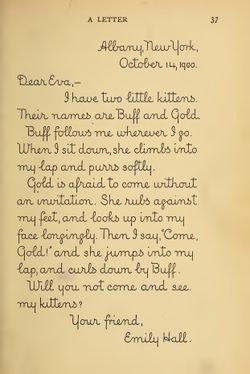 A LETTER 37
Albany, New York,
October 14, 1900.
Dear Eva,—
I have two little kittens.
Their names are Buff and Gold.
Buff follows me wherever I go.
When I sit down, she climbs into
my lap and purrs softly.
Gold is afraid to come without
an invitation. She rubs against
my feet, and looks up into my
face longingly. Then I say, "Come,
Gold!" and she jumps into my
lap, and curls down by Buff.
Will you not come and see
my kittens?
Your friend,
Emily Hall.